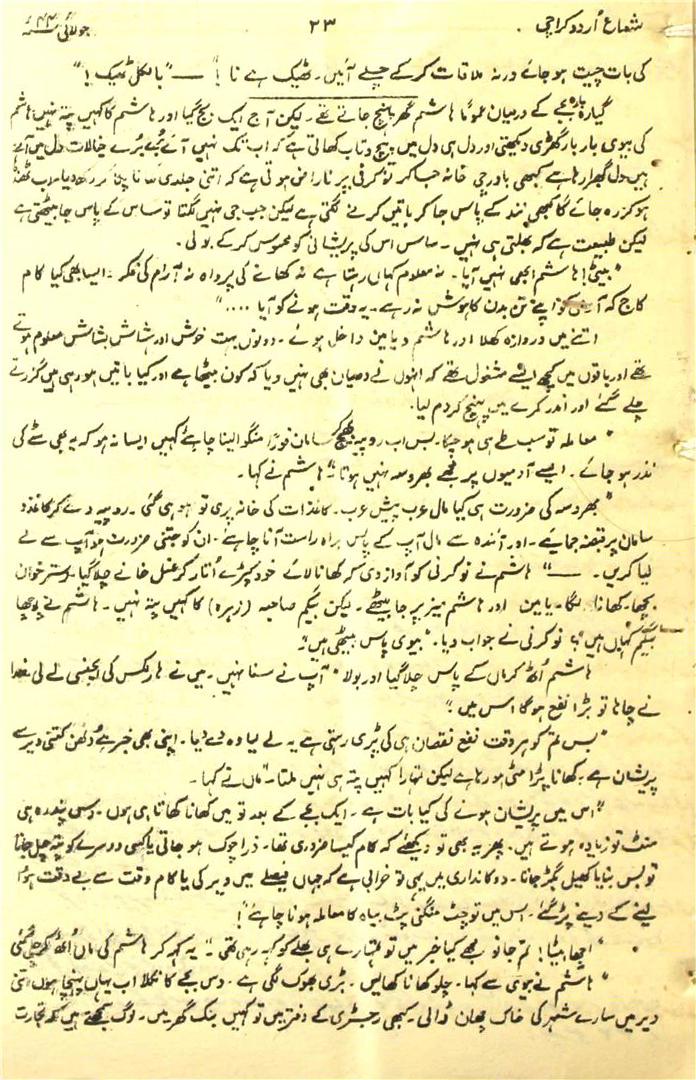 شعاع اُردو کراچی ۲۳ جولائی ۴۴ء
کی بات چیت ہو جائے ورنہ ملاقات کر کے چلے آئیں۔ ٹھیک ہے نا!" —— "بالکل ٹھیک!"
گیارہ بارہ بجے کے درمیان عموماً ہاشم گھر پہنچ جاتے تھے۔ لیکن آج ایک بج گیا اور ہاشم کا کہیں پتہ نہیں ہاشم
کی بیوی بار بار گھڑی دیکھتی اور دل ہی دل میں پیچ و تاب کھاتی ہے کہ اب تک نہیں آئے بُرے بُرے خیالات دل میں آتے
ہیں دل گھبرا رہا ہے کبھی باورچی خانہ جا کر نوکرنی پر ناراض ہوتی ہے کہ اتنی جلدی کھانا پکا کر رکھ دیا اب ٹھنڈا
ہو کر رہ جائے گا کبھی نند کے پاس جا کر باتیں کرنے لگتی ہے لیکن جب جی نہیں لگتا تو ساس کے پاس جا بیٹھتی ہے
لیکن طبیعت ہے کہ بہلتی ہی نہیں۔ ساس اس کی پریشانی کو محسوس کر کے بولی۔
"بیٹی! ہاشم ابھی نہیں آیا۔ نہ معلوم کہاں رہتا ہے نہ کھانے کی پرواہ نہ آرام کی فکر۔ ایسا بھی کیا کام
کاج کہ آدمی کو اپنے تن بدن کا ہوش نہ رہے۔ یہ وقت ہونے کو آیا ...."
اتنے میں دروازہ کھلا اور ہاشم و یامین داخل ہوئے۔ دونوں بہت خوش اور ہشاش بشاش معلوم ہوتے
تھے اور باتوں میں کچھ ایسے مشغول تھے کہ انہوں نے دھیان بھی نہیں دیا کہ کون بیٹھا ہے اور کیا باتیں ہو رہی ہیں گزرتے
چلے گئے اور اندر کمرے میں پہنچ کر دم لیا۔
"معاملہ تو سب طے ہی ہو چکا۔ بس اب روپیہ بھیج کر سامان فوراً منگوا لینا چاہئے کہیں ایسا نہ ہو کہ یہ بھی سٹے کی
نذر ہو جائے۔ ایسے آدمیوں پر مجھے بھروسہ نہیں ہوتا" ہاشم نے کہا۔
"بھروسہ کی ضرورت ہی کیا مال عرب پیش عرب۔ کاغذات کی خانہ پری تو ہو ہی گئی۔ روپیہ دے کر کاغذ و
سامان پر قبضہ جمایئے۔ اور آئندہ سے مال آپ کے پاس براہ راست آنا چاہئے۔ ان کو جتنی ضرورت ہو آپ سے لے
لیا کریں۔ ——" ہاشم نے نوکرنی کو آواز دی کہ کھانا لائے خود کپڑے اُتار کر غسل خانے چلا گیا۔ دسترخوان
بچھا۔ کھانا لگا۔ یامین اور ہاشم میز پر جا بیٹھے۔ لیکن بیگم صاحبہ (زہرہ) کا کہیں پتہ نہیں۔ ہاشم نے پوچھا
"بیگم کہاں ہیں"؟ نوکرنی نے جواب دیا۔ "بیوی پاس بیٹھی ہیں"۔
ہاشم اُٹھ کر ماں کے پاس چلا گیا اور بولا "آپ نے سنا نہیں۔ میں نے ہارکس کی ایجنسی لے لی خدا
نے چاہا تو بڑا نفع ہو گا اس میں"
"بس تم کو ہر وقت نفع نقصان ہی کی پڑی رہتی ہے یہ لے لیا وہ دے دیا۔ اپنی بھی خبر ہے دُلھن کتنی دیر سے
پریشان ہے۔ کھانا پڑا مٹی ہو رہا ہے لیکن تمہارا کہیں پتہ ہی نہیں ملتا"۔ ماں نے کہا۔
"اس میں پریشان ہونے کی کیا بات ہے۔ ایک بجے کے بعد تو میں کھانا کھاتا ہی ہوں۔ دس پندرہ ہی
منٹ تو زیادہ ہوتے ہیں۔ پھر یہ بھی تو دیکھئے کہ کام کیسا ضروری تھا۔ ذرا چوک ہو جاتی یا کسی دوسرے کو پتہ چل جاتا
تو بس بنا بنایا کھیل بگڑ جاتا۔ دوکانداری میں یہی تو خرابی ہے کہ جہاں فیصلے میں دیر کی یا کام وقت سے بے وقت ہوا
لینے کے دینے پڑ گئے۔ اس میں تو چٹ منگنی پٹ بیاہ کا معاملہ ہونا چاہئے"!
"اچھا بیٹا! تم جانو مجھے کیا خبر میں تو تمہارے ہی بھلے کو کہہ رہی تھی"۔ یہ کہہ کر ہاشم کی ماں اُٹھ کر چلی گئی
"ہاشم نے بیوی سے کہا۔ چلو کھانا کھالیں۔ بڑی بھوک لگی ہے۔ دس بجے کا نکلا اب یہاں پہنچا ہوں اتنی
دیر میں سارے شہر کی خاک چھان ڈالی۔ کبھی رجسٹری کے دفتر میں تو کہیں بنک گھر میں۔ لوگ سمجھتے ہیں کہ تجارت